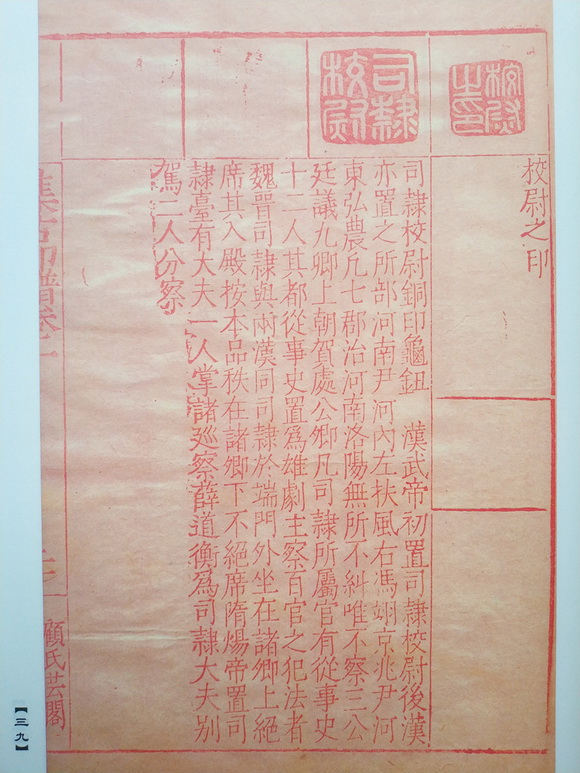 校尉之印
校尉之印
司隸校尉
司隸校尉銅印龜鈕 漢武帝初置司隸校尉後漢
亦置之所部河南尹河內左扶風右馮翊京兆尹河
東弘農凡七郡治河南洛陽無所不糾唯不察三公
廷議九卿上朝賀處公卿凡司隸所屬官有從事史
十二人其都從事史置爲雄劇主察百官之犯法者
魏晉司隸與兩漢同司隸於端門外坐在諸卿上絕
席其入殿按本品秩在諸卿下不絕席隋煬帝置司
隸臺有大夫一人掌諸廵察薛道衡爲司隸大夫別
駕二人分察
集古印譜卷
顧氏芸閣
【三九】